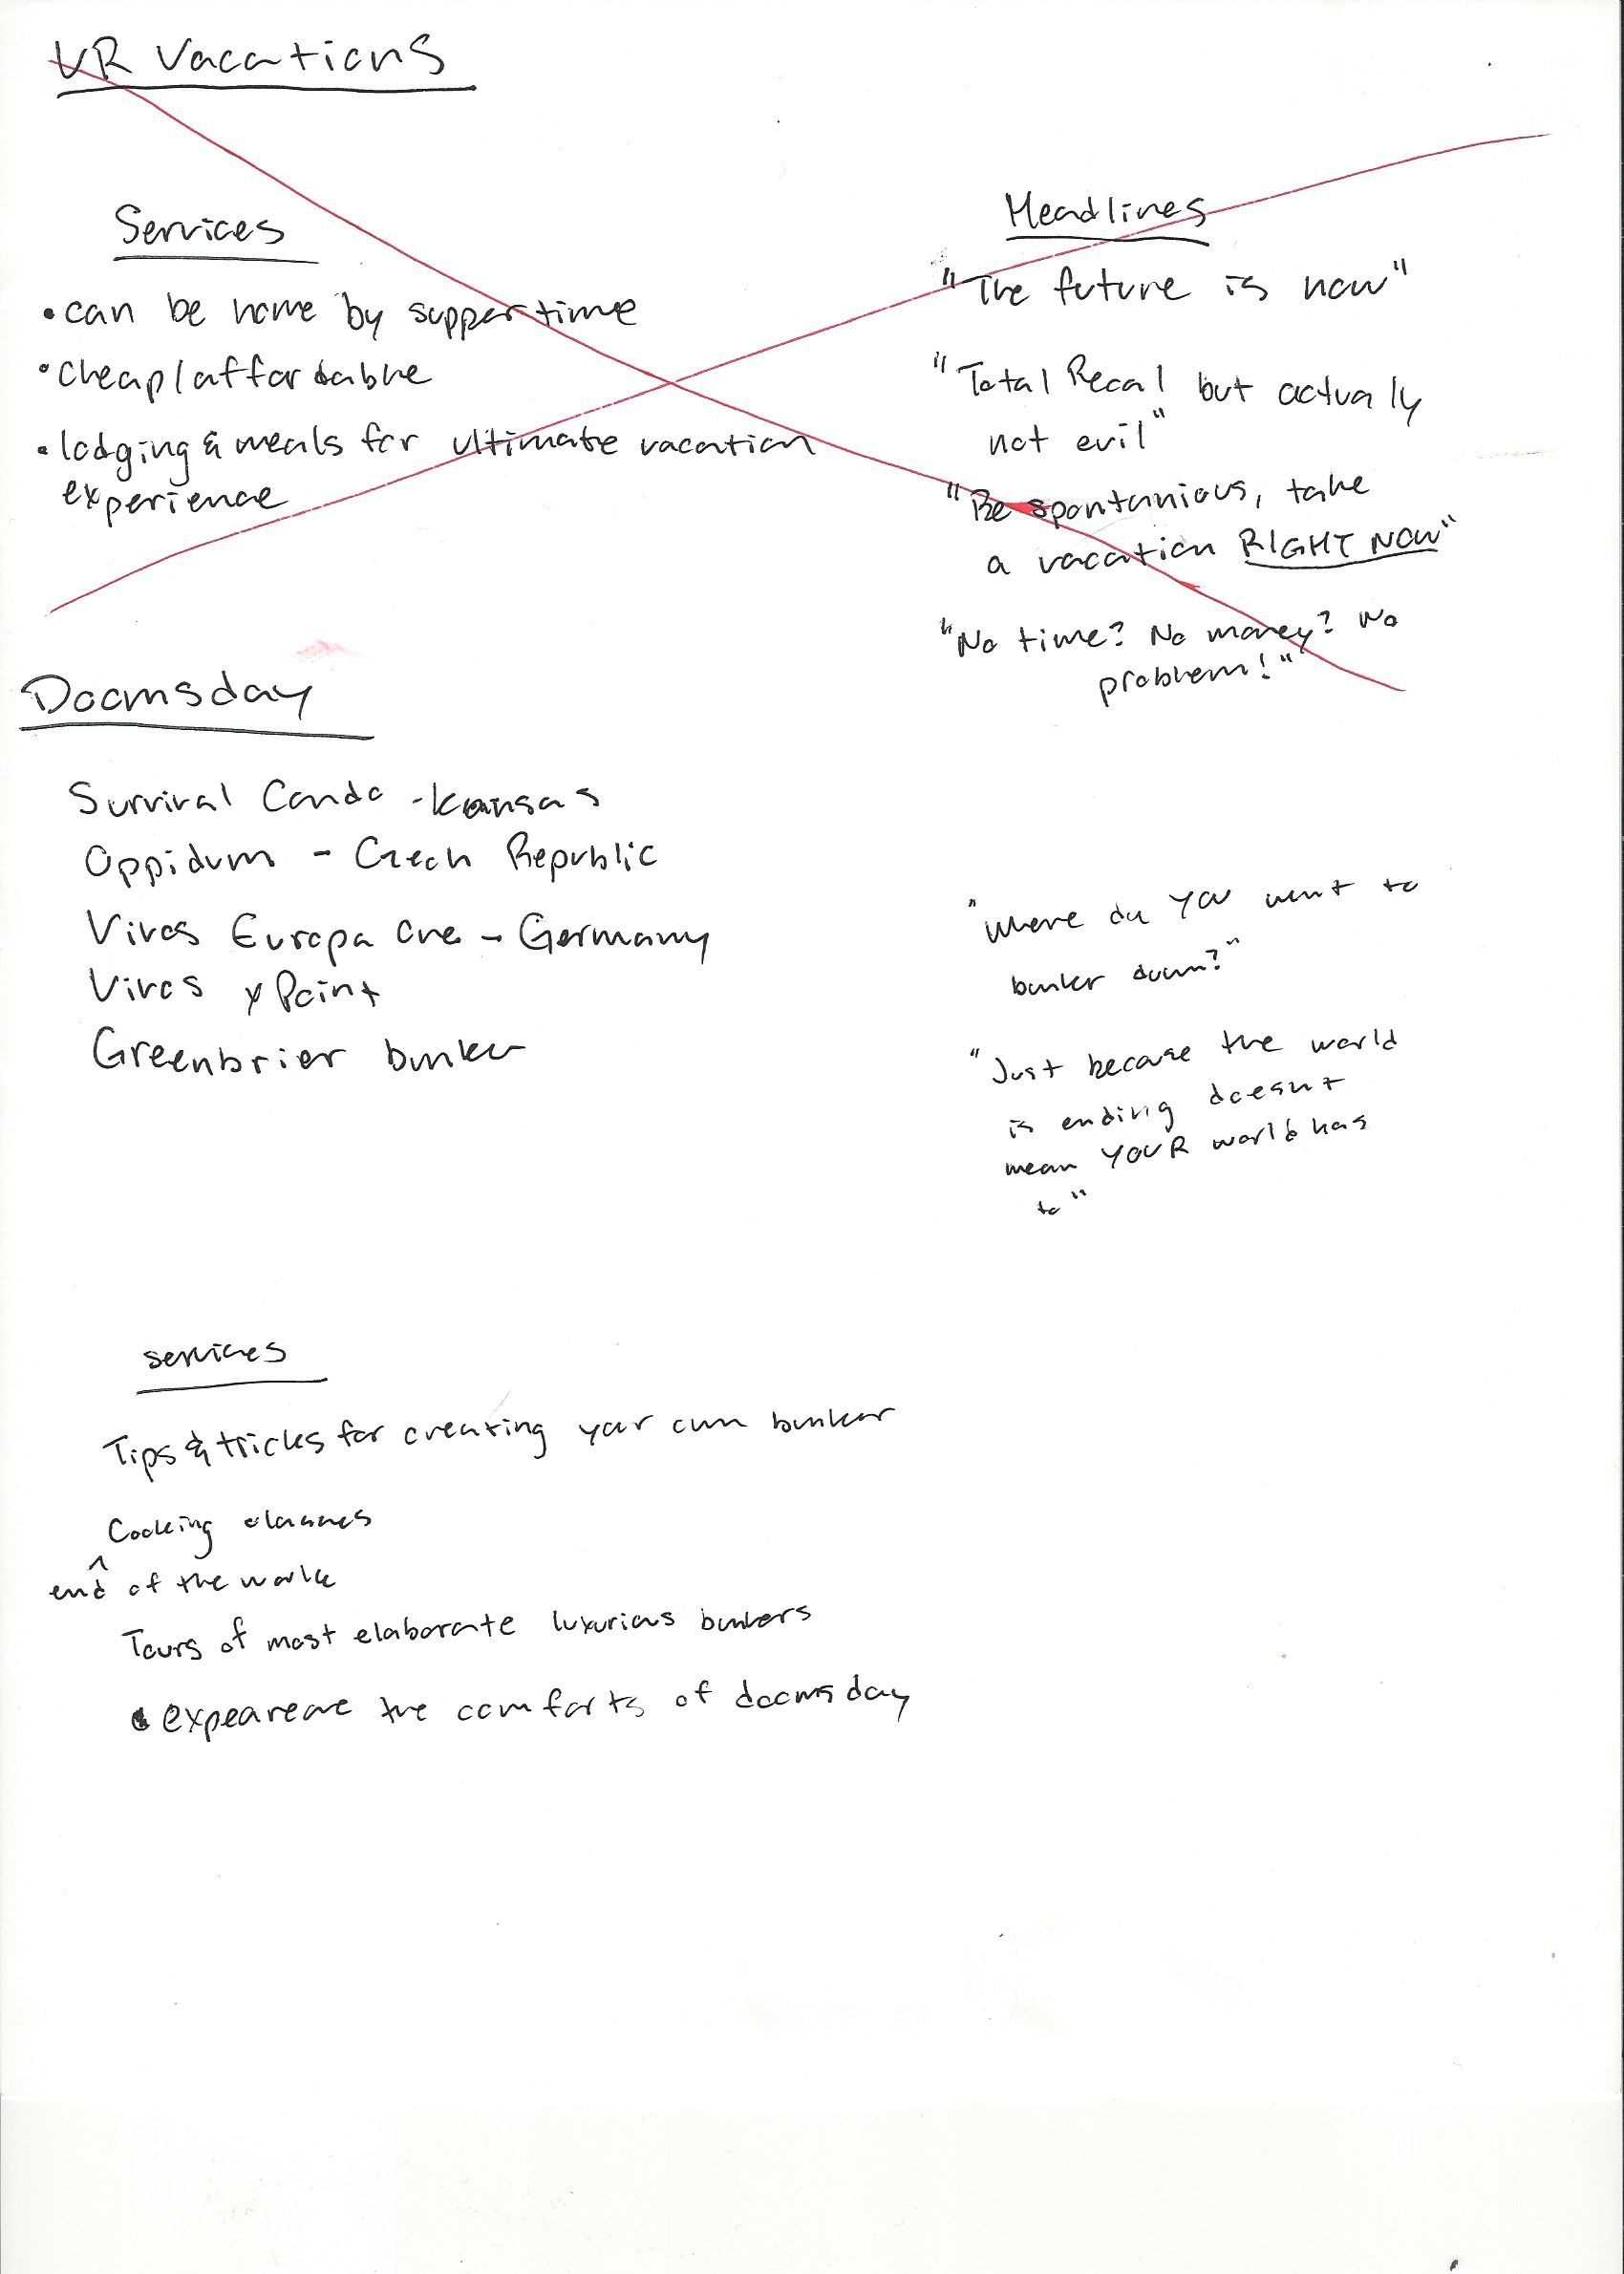 VR Vacations
Services
• can be home by suppertime
• Cheap/affordable
• lodging & meals for ultimate vacation
experience
Headlines
"The future is now"
"Total Recal but actually
not evil"
"Be spontanious, take
a vacation RIGHT NOW"
"No time? No money? No
problem!"
Doomsday
Survival Condo - Kansas
Oppidum - Czech Republic
Vivos Europa One - Germany
Vivos xPoint
Greenbrier bunker
"Where do YOU want to
bunker down?"
"Just because the world
is ending doesnt
mean YOUR world has
to"
services
Tips & tricks for creating your own bunker
Cooking classes
^
end of the world
Tours of most elaborate luxurious bunkers
• the comforts of doomsday